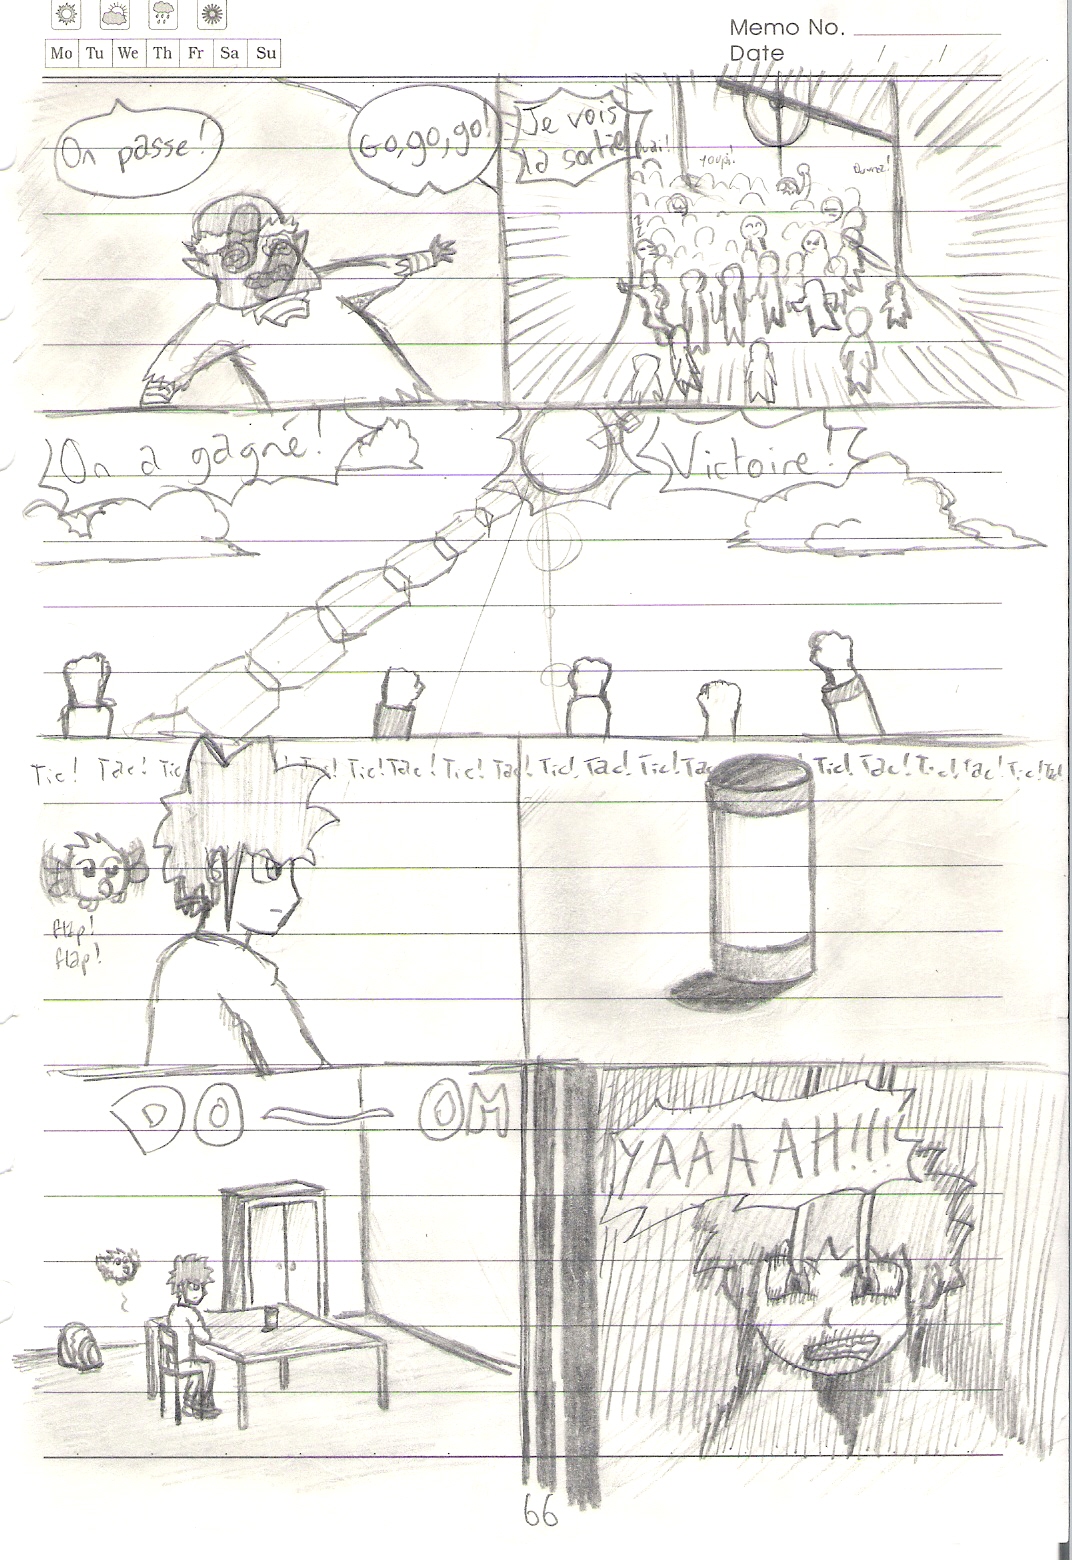 Memo No.
Mo Tu We Th Fr Sa Su
Date / /
On passe!
Go, go, go!
Je vois
la sortie
Youpi!
On a gagné!
Victoire!
Tic! Tac! Tic
! Tic! Tac! Tic! Tac! Tic! Tac! Tic! Tac
Tic! Tac! Tic! Tac! Tic! Tac!
flap!
flap!
DO — OM
YAAAAH!!!
66